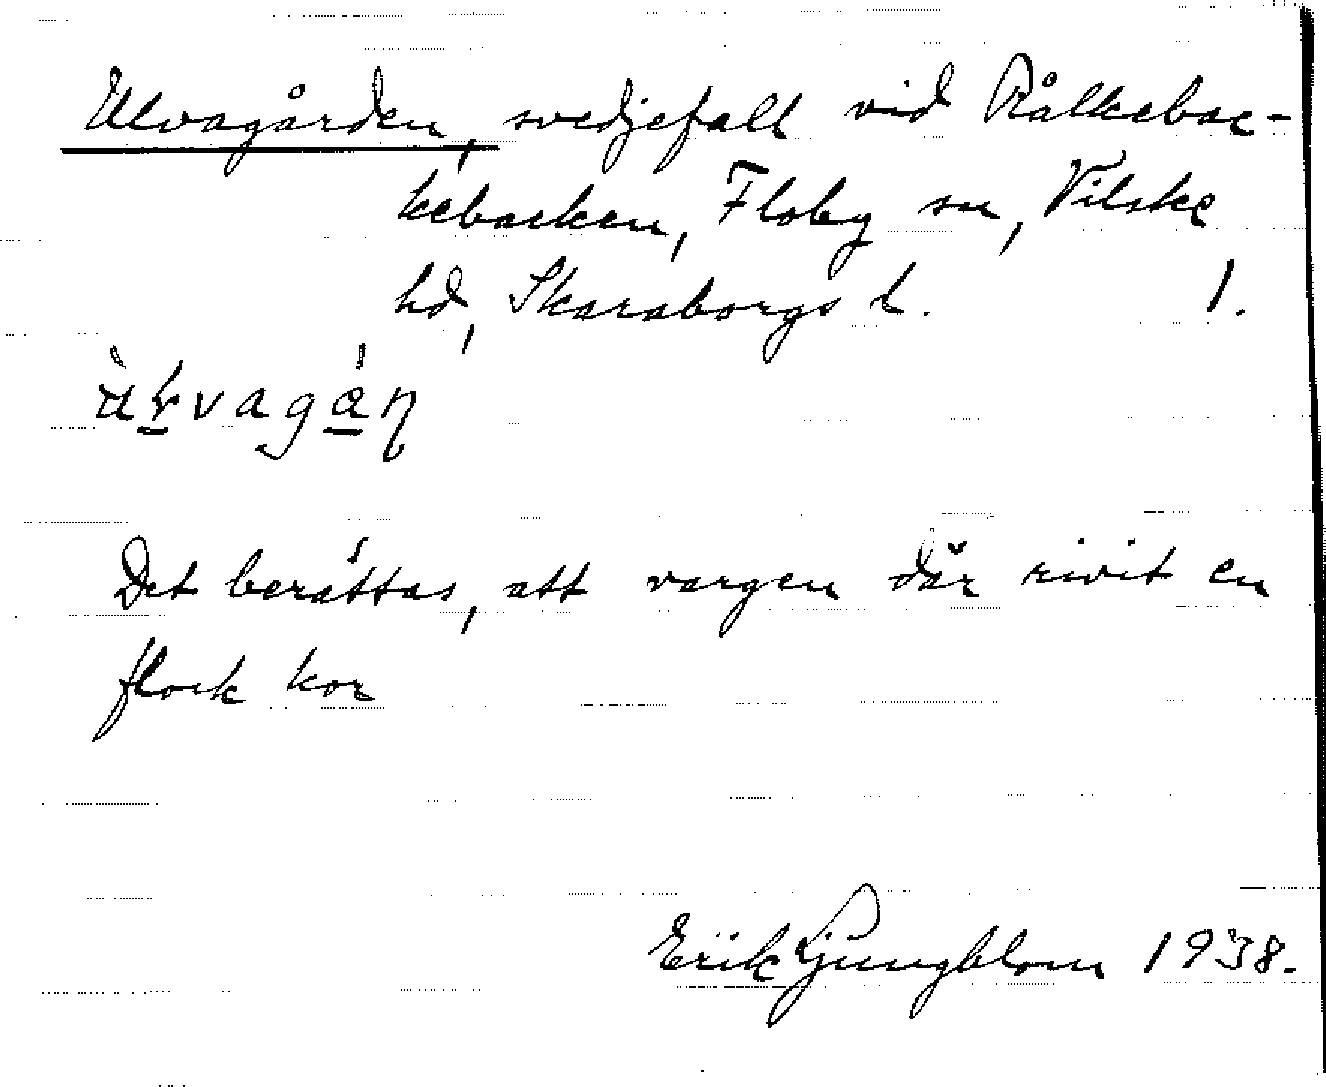 Ulvagården, svedjefall vid Rålkebac-
kebacken, Floby sn, Vilske
hd, Skaraborgs l. 1.
Det berättas, att vargen där rivit en
flock kor
Erik Ljungblom 1938.